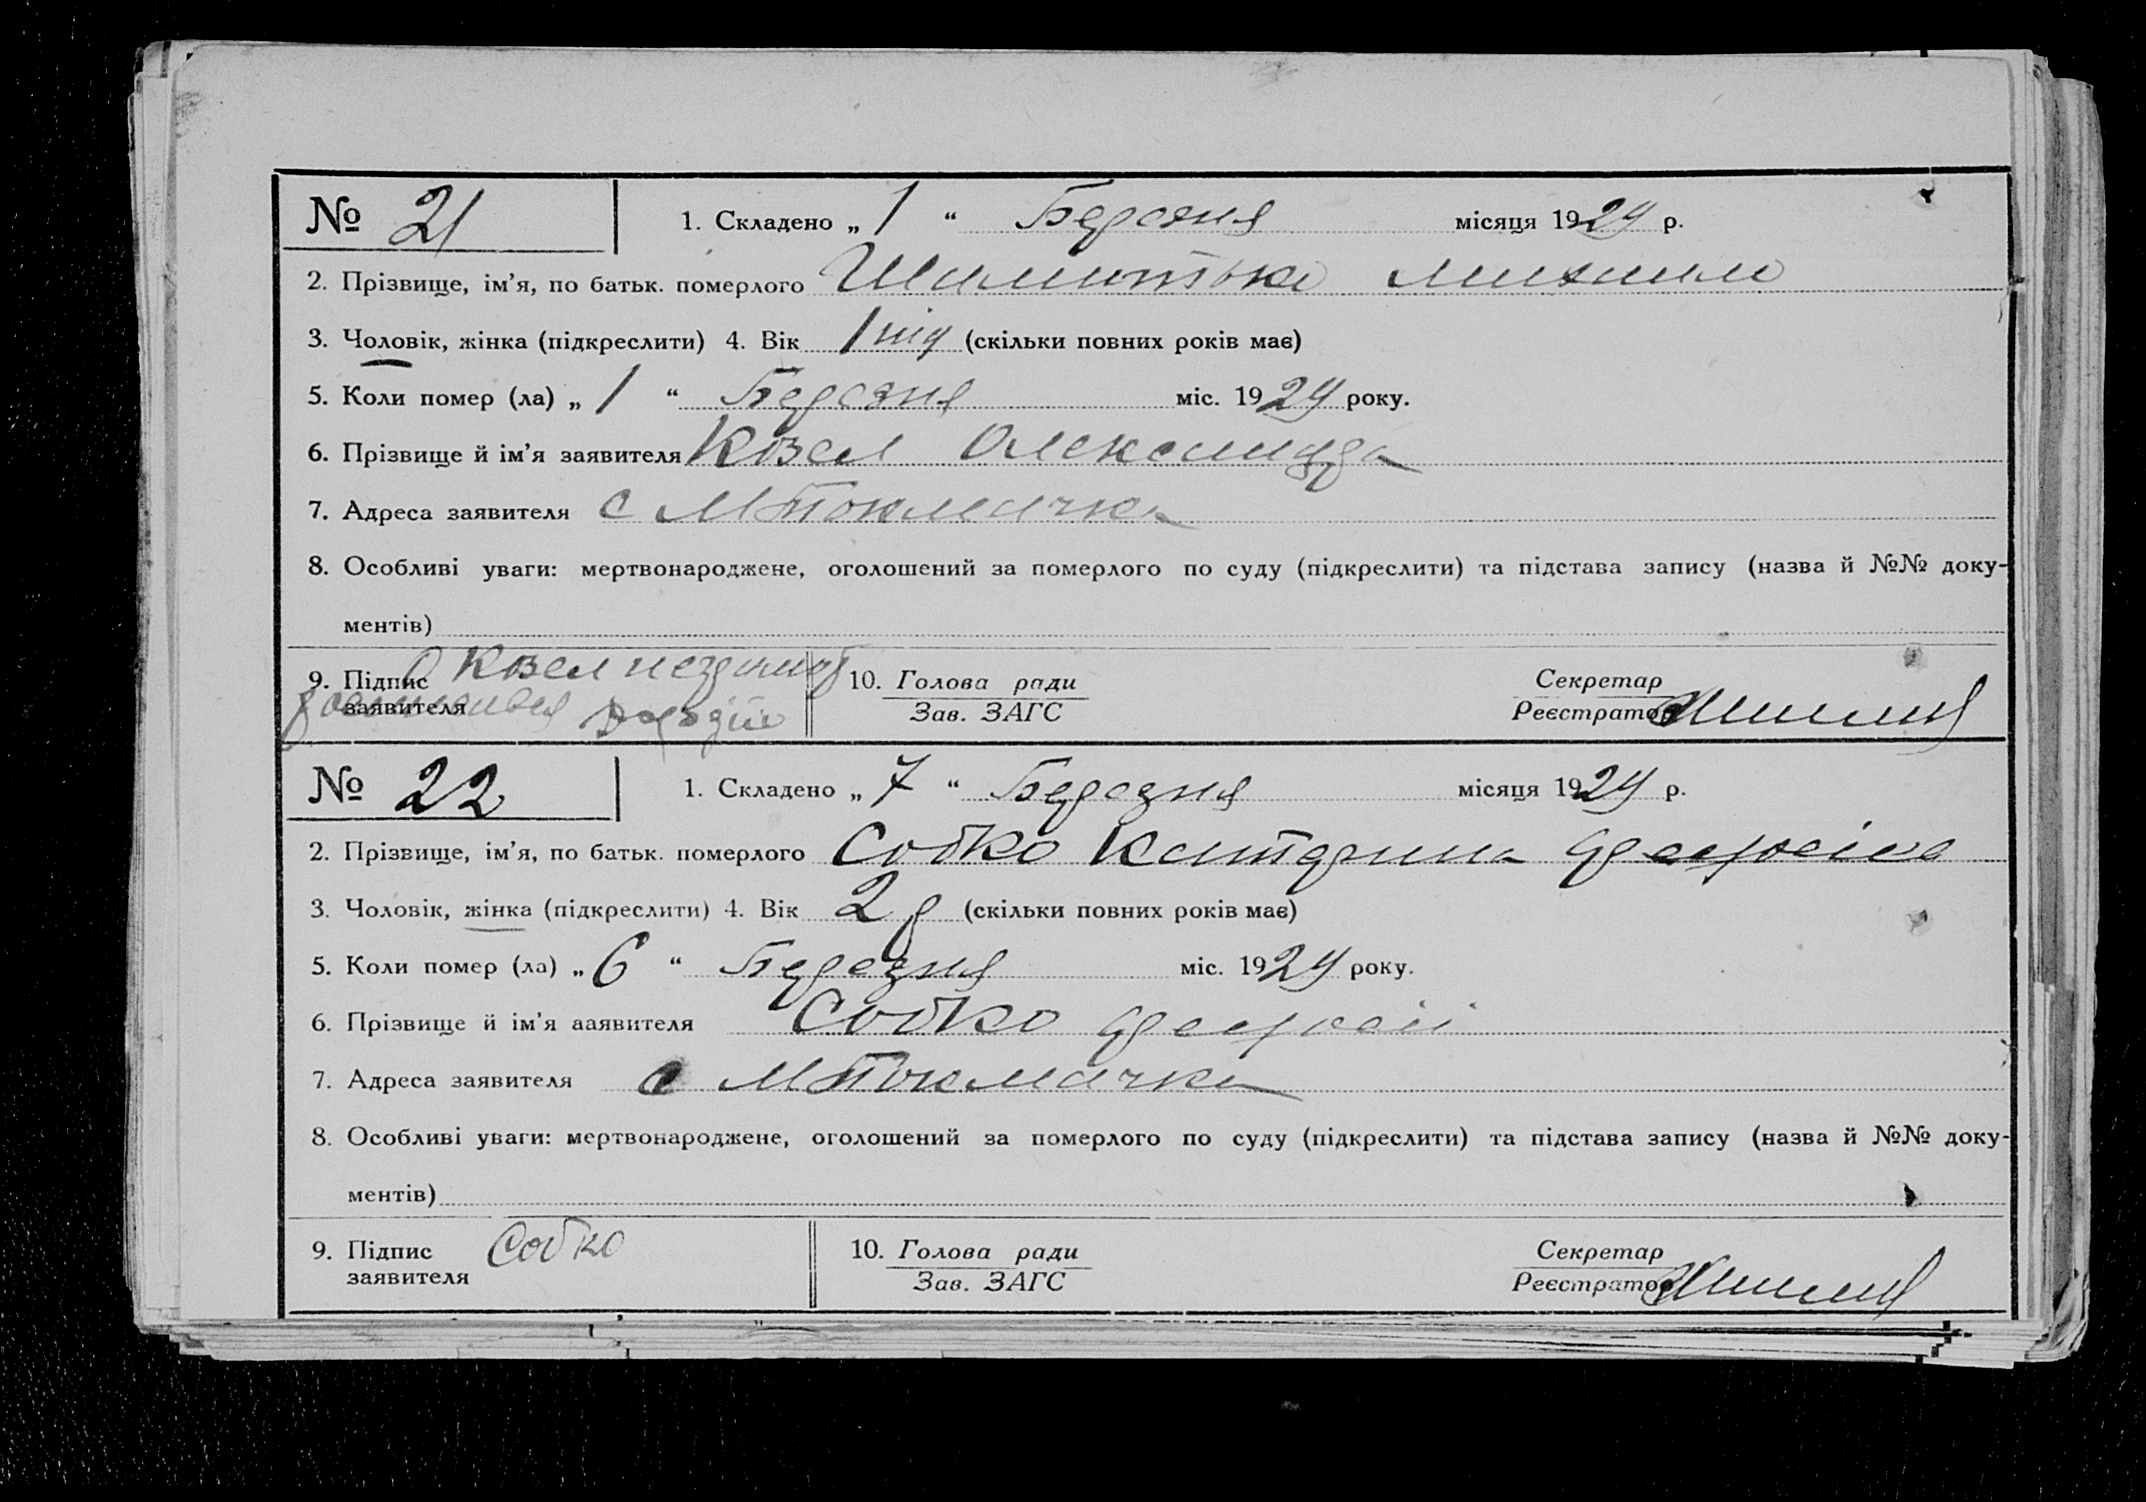 № 21 1. Складено „ 1 “ Березня місяця 1929 р.
2. Прізвище, ім’я, по батьк. померлого
3. Чоловік, жінка (підкреслити) 4. Вік 1 рід (скільки повних років має)
5. Коли помер (ла) „ 1 “ Березня міс. 1929 року.
6. Прізвище й ім’я заявителя Козел Олександра
7. Адреса заявителя с МТокмачка
8. Особливі уваги: мертвонароджене, оголошений за померлого по суду (підкреслити) та підстава запису (назва й №№ доку-
ментів)
9. Підпис Козел
заявителя
10. Голова ради
Зав. ЗАГС
Секретар
Реєстратор
№ 22 1. Складено „ 7 “ Березня місяця 1929 р.
2. Прізвище, ім’я, по батьк. померлого Собко Катерина
3. Чоловік, жінка (підкреслити) 4. Вік 2 р (скільки повних років має)
5. Коли помер (ла) „ 6 “ Березня міс. 1929 року.
6. Прізвище й ім’я ааявителя Собко
7. Адреса заявителя с МТокмачка
8. Особливі уваги: мертвонароджене, оголошений за померлого по суду (підкреслити) та підстава запису (назва й №№ доку-
ментів)
9. Підпис Собко
заявителя
10. Голова ради
Зав. ЗАГС
Секретар
Реєстратор